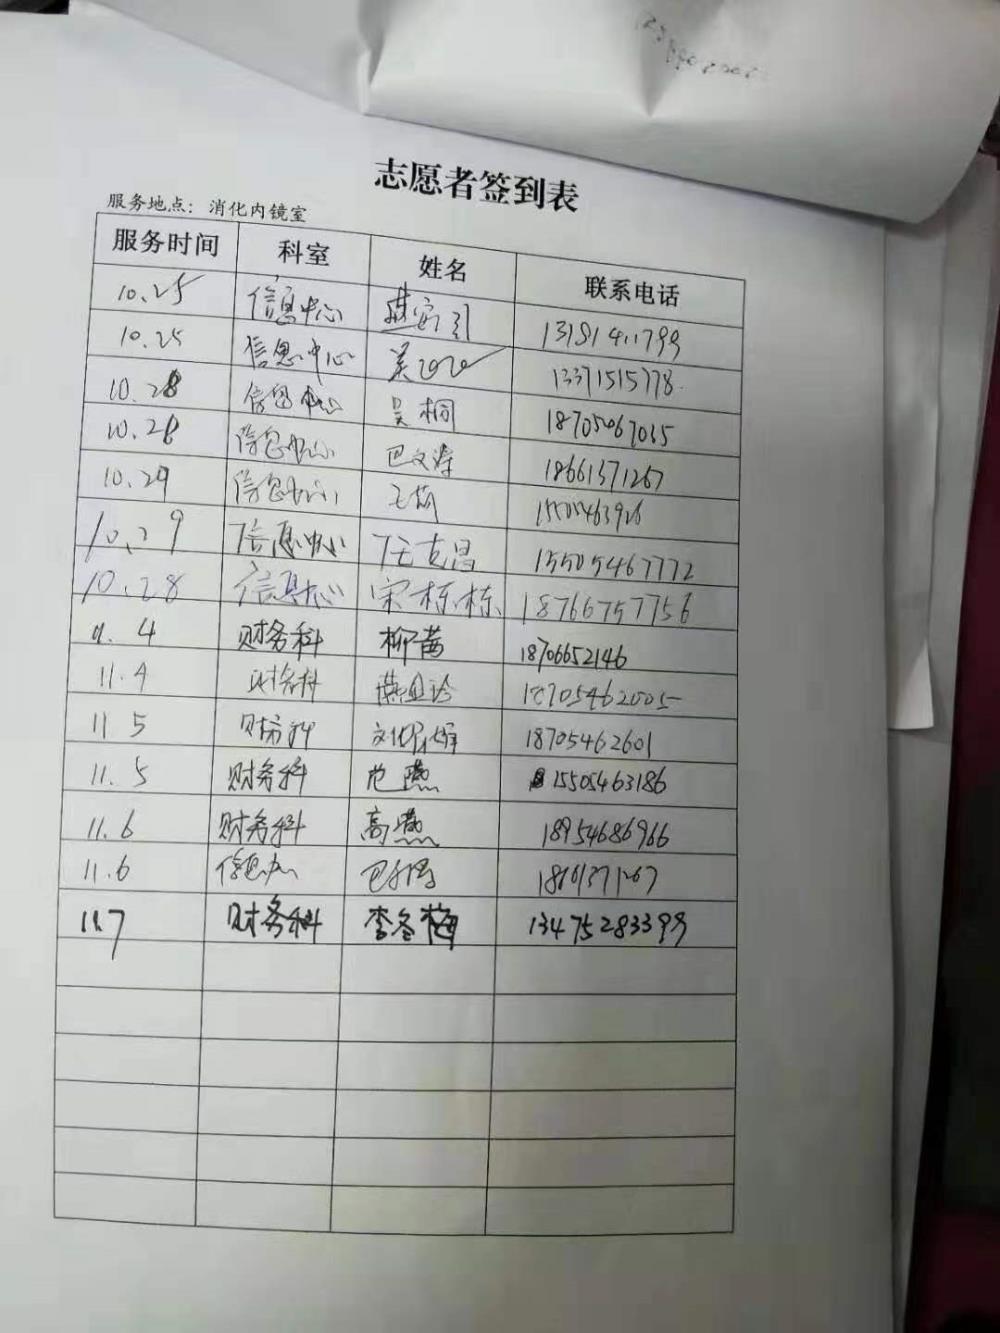 志愿者签到表
服务地点：消化内镜室
服务时间 科室 姓名 联系电话
10.25 信息中心 13181411799
10.25 信息中心 13371515778
10.28 信息中心 吴桐 18705067035
10.28 信息中心 巴文涛 18661371267
10.29 信息中心 王茹 15505463926
10.29 信息中心 任克昌 15505467772
10.28 信息中心 宋栋栋 18766757756
11.4 财务科 柳茜 18706652146
11.4 财务科 18705462005
11 5 财务科 18705462601
11.5 财务科 范燕 15505463186
11.6 财务科 高燕 18954686966
11.6 信息中心
11.7 财务科 李冬梅 13475283399